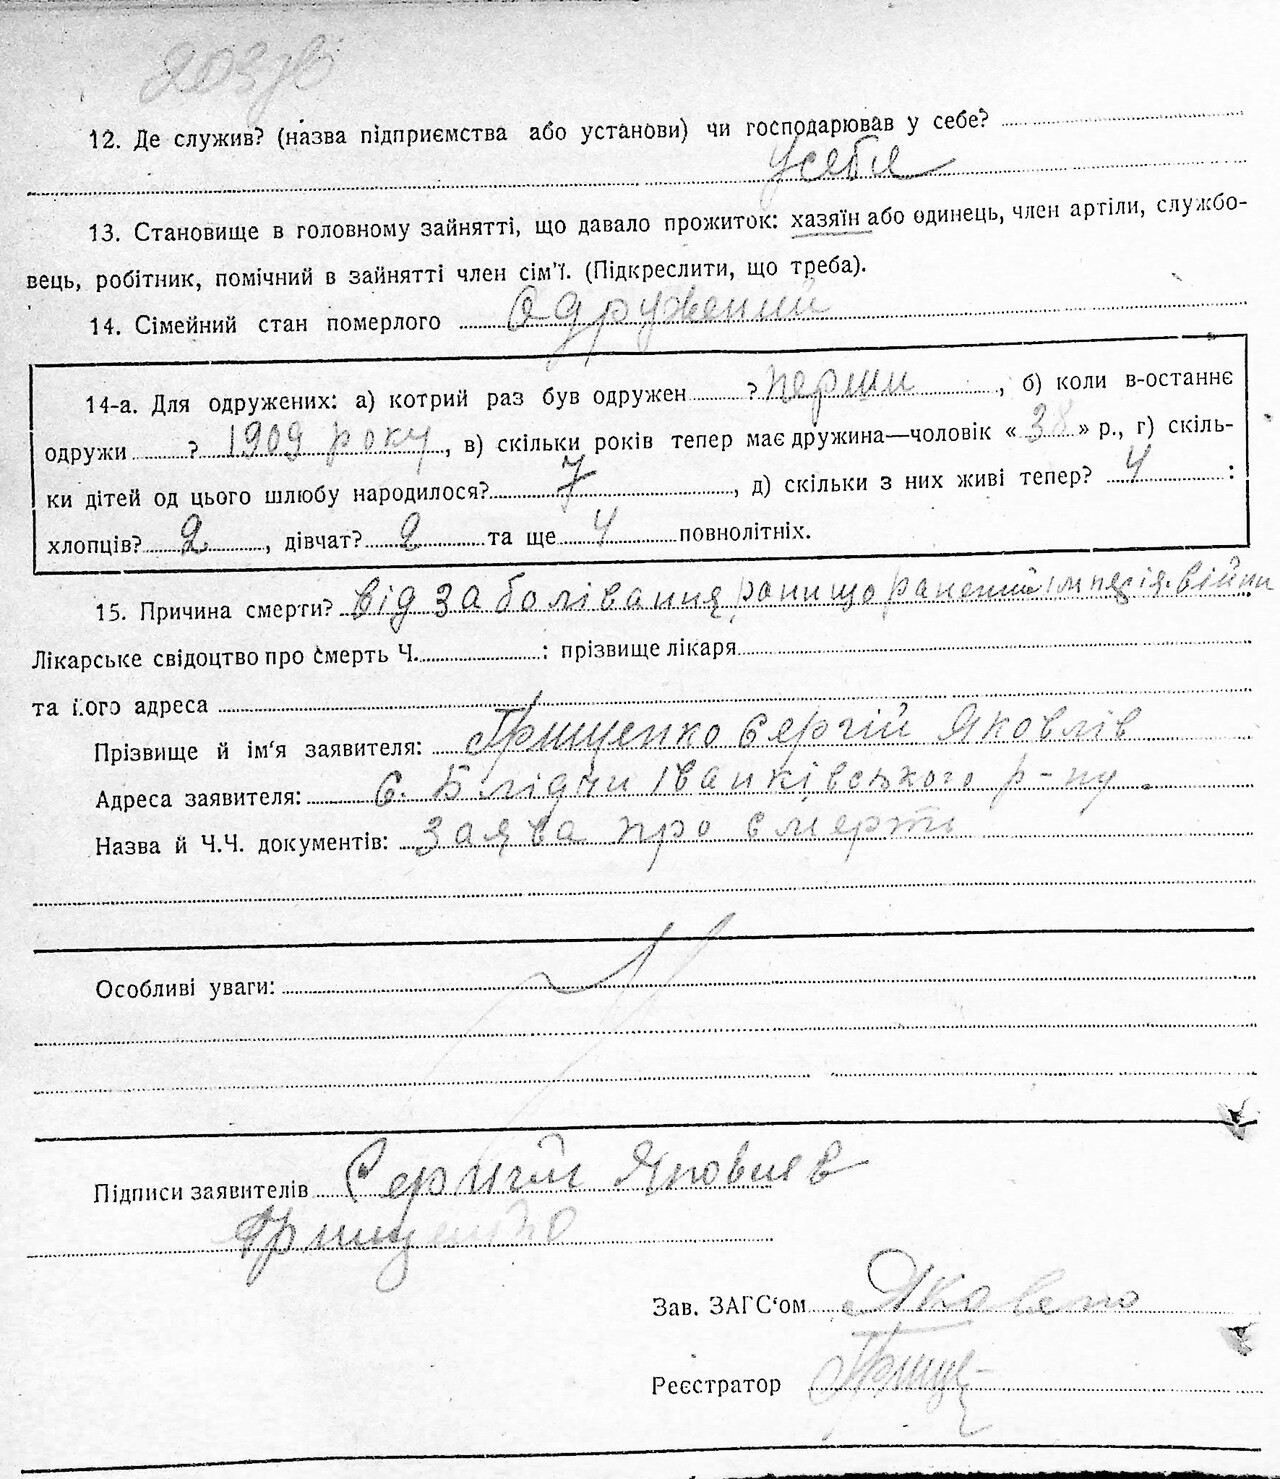 203
12. Де служив? (назва підприємства або установи) чи господарював у себе?
у себе
13. Становище в головному зайнятті, що давало прожиток: хазяїн або одинець, член артіли, службо-
вець, робітник, помічний в зайнятті член сім'ї. (Підкреслити, що треба).
14. Сімейний стан померлого одружений
14-а. Для одружених: а) котрий раз був одружен ? перши , б) коли в-останнє
одружи ? 1909 року , в) скільки років тепер має дружина—чоловік « 38 » р., г) скіль-
ки дітей од цього шлюбу народилося? 7 , д) скільки з них живі тепер? 4 :
хлопців? 2 , дівчат? 2 та ще 4 повнолітніх.
15. Причина смерти? Від заболівання рани що ранений війни
Лікарське свідоцтво про смерть Ч. : прізвище лікаря
та його адреса
Прізвище й ім'я заявителя: Грищенко Сергій Яковлів
Адреса заявителя: с. Блідчи Іванківського р-ну
Назва й Ч.Ч. документів: Заява про смерть
Особливі уваги:
Підписи заявителів Сергий Яковлев
Грищенко
Зав. ЗАГС'ом
Реєстратор Грище-